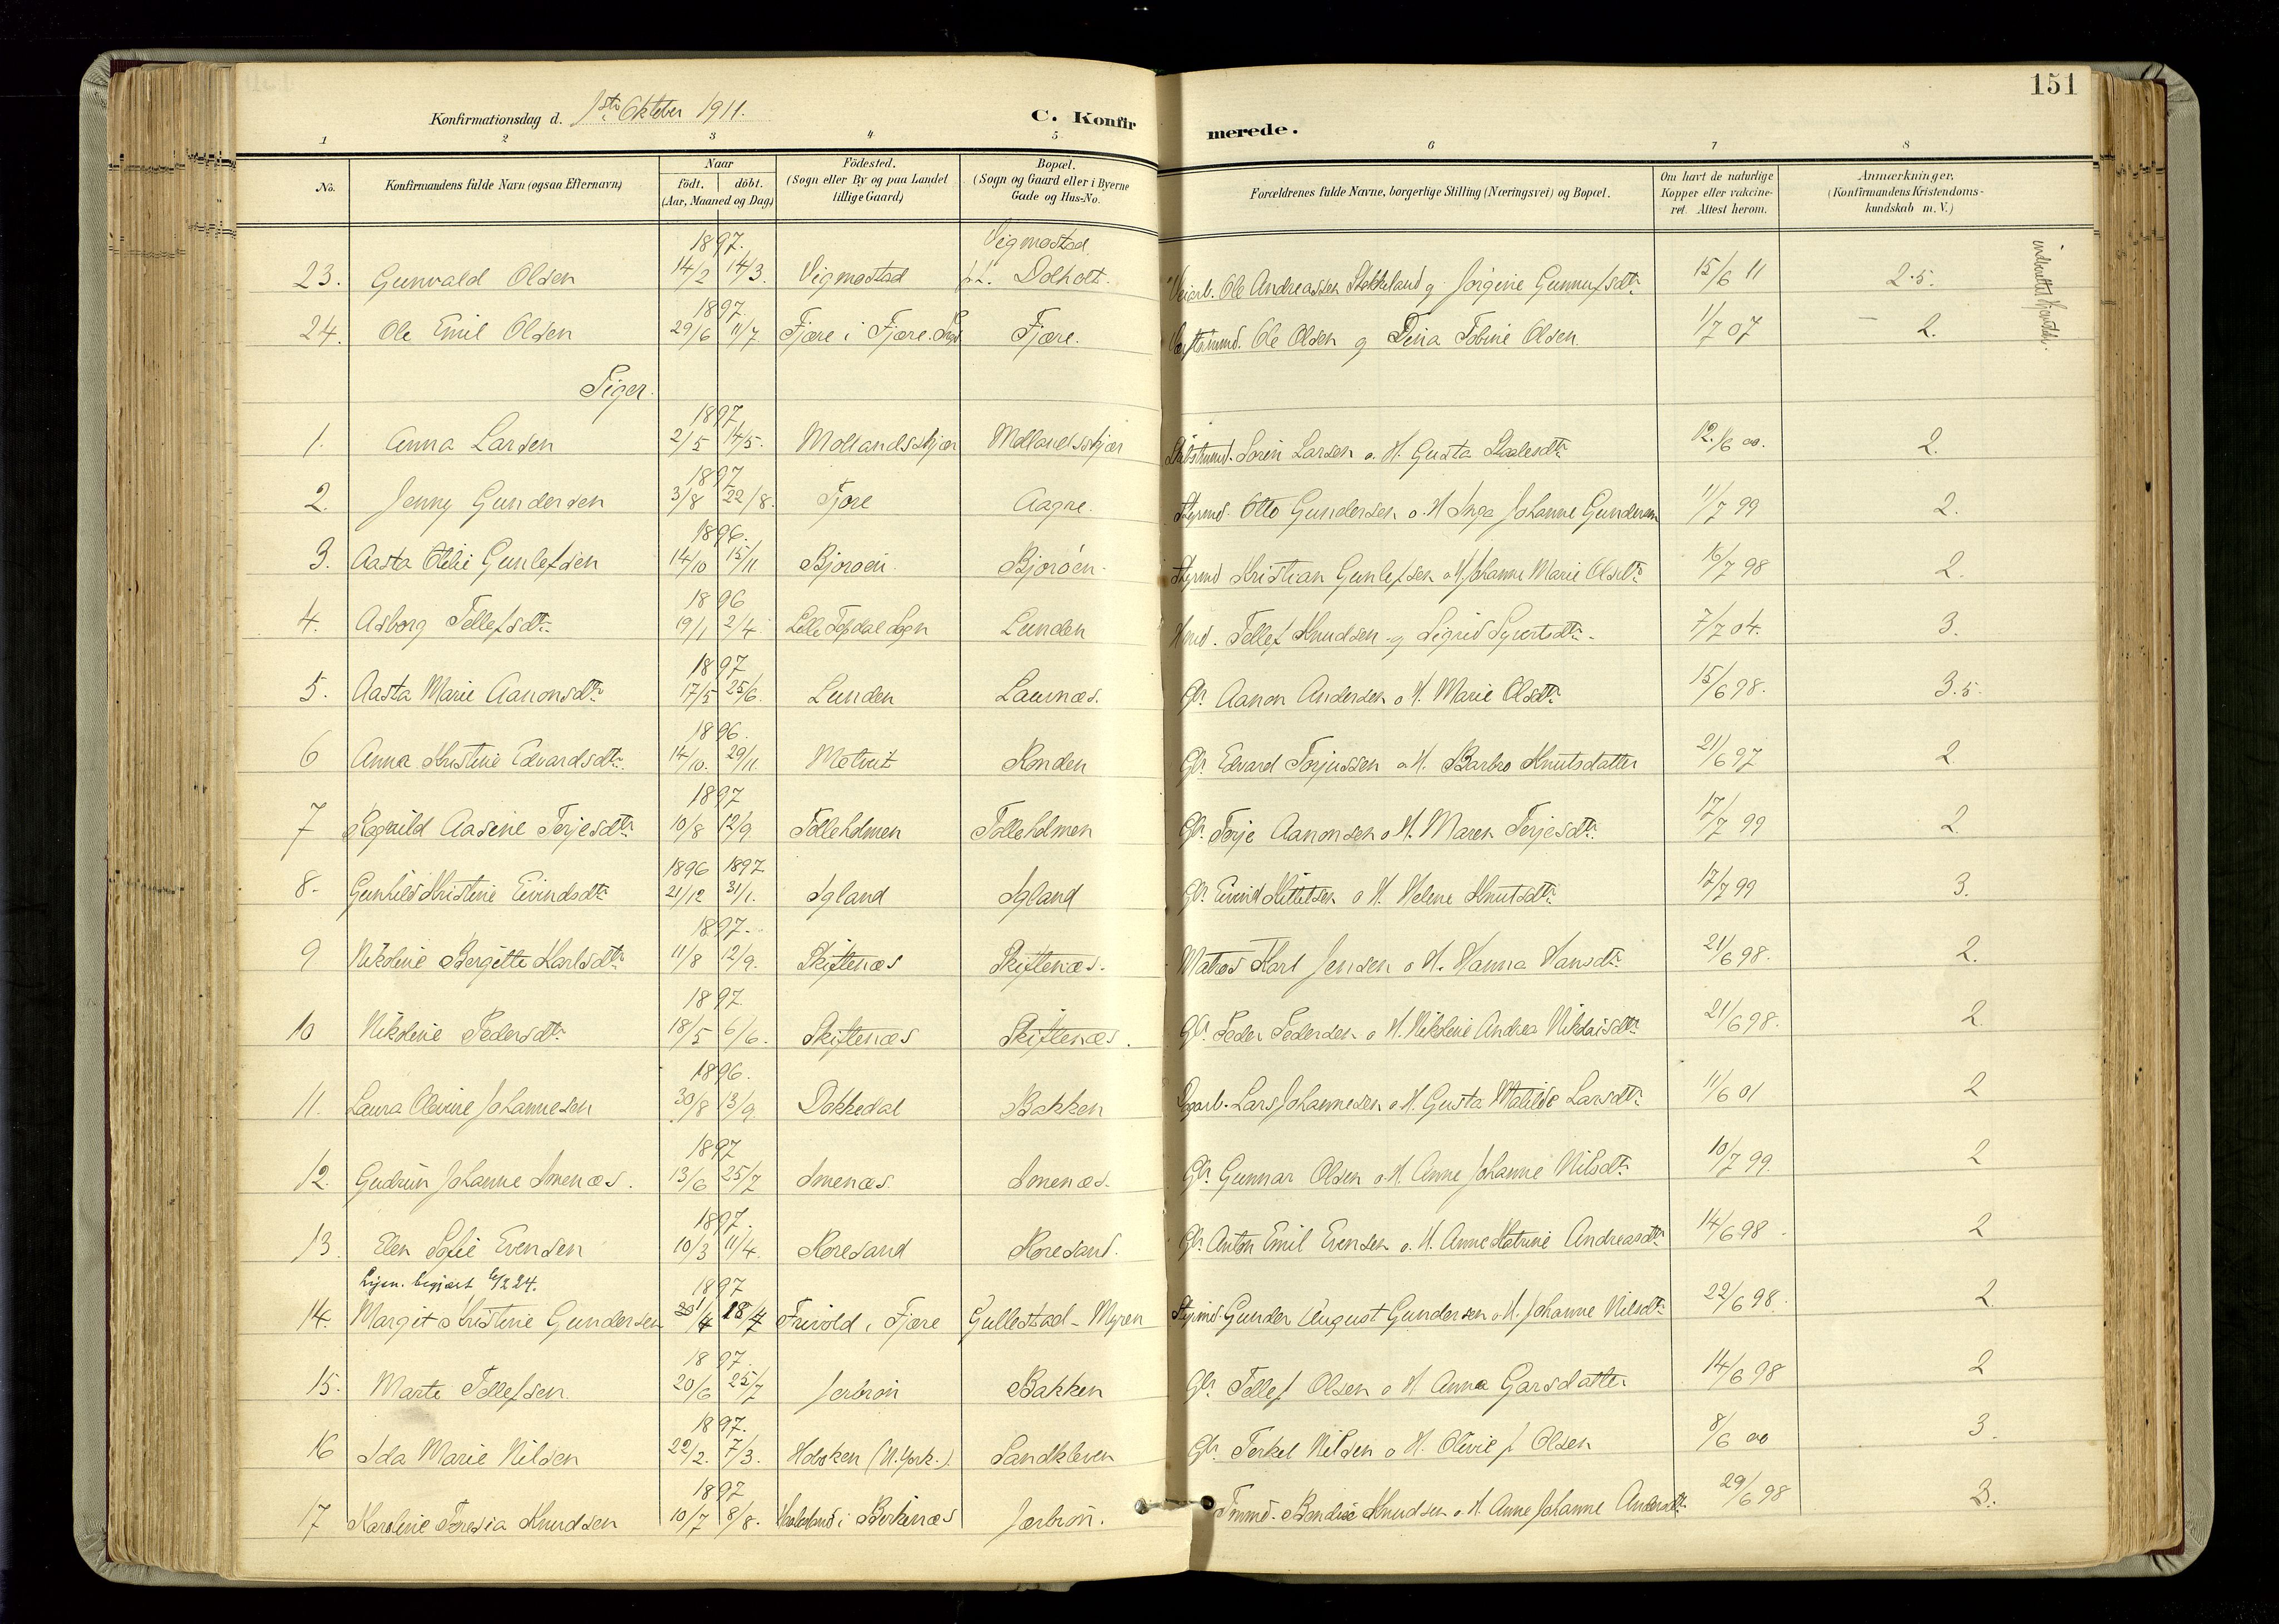 151
Konfirmationsdag d. 1ste Oktober 1911.
C. Konfirmerede.
1 2 3 4 5 6 7 8
No. Konfirmandens fulde Navn (ogsaa Efternavn) Naar født. døbt. (Aar, Maaned og Dag) Födested. (Sogn eller By og paa Landet tillige Gaard) Bopæl. (Sogn og Gaard eller i Byerne Gade og Hus-No. Forældrenes fulde Navne, borgerlige Stilling (Næringsvei) og Bopæl. Om havt de naturlige Kopper eller vakcineret. Attest herom. Anmærkninger. (Konfirmandens Kristendomskundskab m. V.)
1897. Vigmostad
23. Gunvald Olsen 14/2 14/3. Vigmostad Dolholt. Veiarb. Ole Andreassen Stokkeland og Jørgine Gunnufsdtr 15/6 11 2.5.
1897.
24. Ole Emil Olsen 29/6 11/7. Fjære i Fjære Fjære. Ole Olsen og Dina Tobine Olsen 1/7 07 2.
Piger.
1897
1. Anna Larsen 2/5 14/5. Mollandsskjær Mollandsskjær Sørin Larsen o. H. Gusta 12/6 00. 2.
1897
2. Jenny Gundersen 3/8 22/8. Fjære Aagre. Styrmd. Otto Gundersen o. H Inga Johanne Gundersen 11/7 99 2.
1896.
3. Aasta Gunlefsen 14/10 15/11 Bjoroen Bjoroen Styrmd Kristian Gunlefsen o H. Johanne Marie Olsdtr 16/7 98 2.
1896
4. Asborg Tellefsdtr. 19/1 2/4. Lille Topdal Sogn Lunden Tellef Knudsen og Sigrid Syvertsdtr. 7/7 04. 3.
1897
5. Aasta Marie Aanonsdtr 17/5 25/6. Lunden Launæs. Gbr. Aanon Andersen o H. Marie Olsdtr 15/6 98. 3.5.
1896.
6 Anna Kristine Edvardsdtr. 14/10. 29/11. Molveit Ronden Gbr. Edvard Torjussen o H. Barbro Knutsdatter 21/6 97 2
1897
7 Ragnild Aasine Terjesdtr 10/8 12/9 Tolleholmen Tolleholmen Gbr. Terje Aanonsen o H. Maren Terjesdtr. 17/7 99 2.
1896 1897
8. Gunhild Kristine Eivindsdtr 21/12 31/1. Igland Igland Gbr. Eivind Kittelsen o H. Helene Knutsdtr. 17/7 99 3.
1897.
9 Nikoline Bergitte Karlsdtr 11/8 12/9. Skiftenæs Skiftenæs. Matros Karl Jensen o H. Hanna Hansdtr. 21/6 98. 2.
1897
10 Nikoline Pedersdtr. 18/5 6/6. Skiftenæs Skiftenæs. Gbr. Peder Pedersen o H. Nikoline Andrea Nikolaisdtr 21/6 98. 2.
1896.
11. Laura Olevine Johannesen 30/8 13/9 Dokkedal Bakken Dagarb. Lars Johannesen o H. Gusta Matilde Larsdtr 11/6 01 2
1897
12. Gudrun Johanne Imenæs. 13/6 25/7 Imenæs. Imenæs. Gbr. Gunnar Olsen o H. Anne Johanne Nilsdtr. 10/7 99. 2
1897.
13. Elen Sofie Evensen 10/3 11/4. Roresand Roresand. Gbr. Anton Emil Evensen o. H. Anne Katrine Andreasdtr 14/6 98 2
Lysn. begjært 6/2 24. 1897
14. Margit Kristine Gundersen 1/4 18/4 Frivold i Fjære Gullestad - Myren Styrmd. Gunder August Gundersen o H. Johanne Nilsdtr 22/6 98. 2.
1897.
15. Marte Tellefsen 20/6 25/7 Jerbron Bakken Gbr. Tellef Olsen o H Anna Garsdatter 14/6 98 2
1897.
16 Ida Marie Nilsen 22/2. 7/3. Hoboken (N. York.) Sandkleven Gbr. Terkel Nilsen o H. Olivie J Olsen 8/6 00 3.
1897
17 Karoline Teresia Knudsen 10/7 8/8. i Birkenæs Jerbron. Tmmd. Bendix Knudsen o H. Anne Johanne 29/6 98 3.